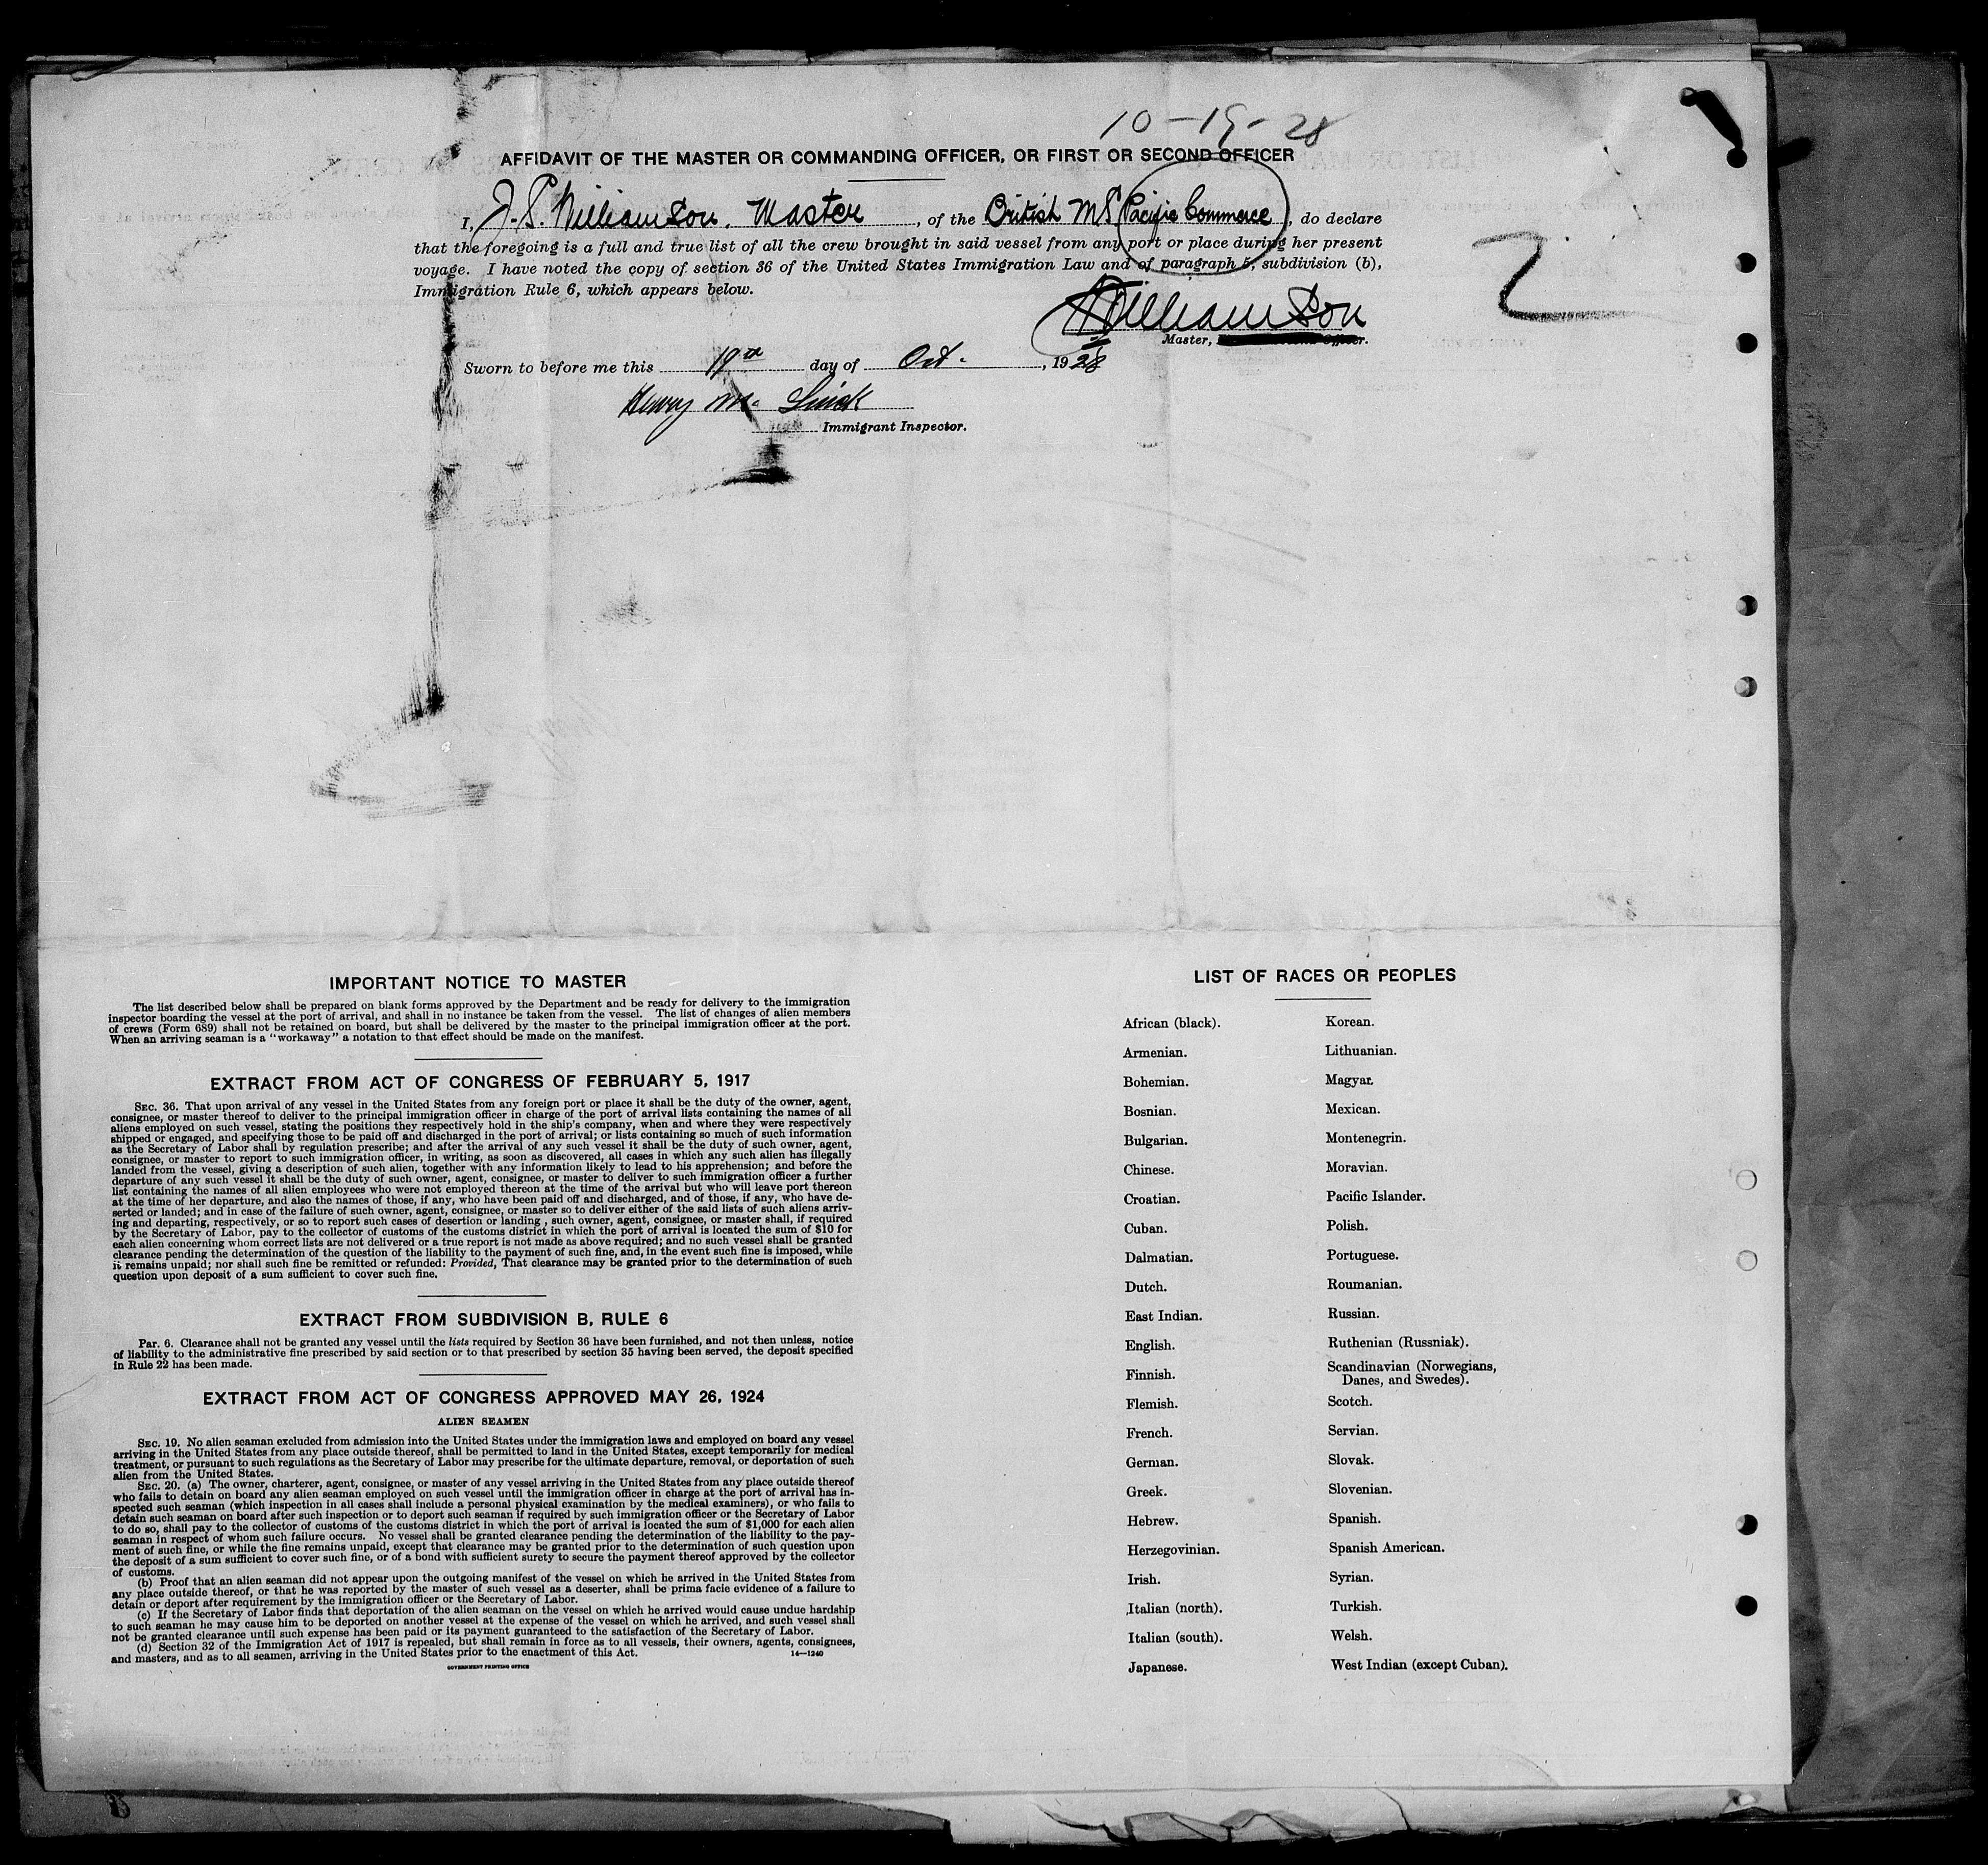 10-19-28
AFFIDAVIT OF THE MASTER OR COMMANDING OFFICER, OR FIRST OR SECOND OFFICER
I, J. P. Williamson. Master, of the British MS Pacific Commerce, do declare
that the foregoing is a full and true list of all the crew brought in said vessel from any port or place during her present
voyage. I have noted the copy of section 36 of the United States Immigration Law and of paragraph 5, subdivision (b),
Immigration Rule 6, which appears below.
2
Williamson
Master,
Sworn to before me this 19th day of Oct. , 1928
Henry Mc
Immigrant Inspector.
IMPORTANT NOTICE TO MASTER
The list described below shall be prepared on blank forms approved by the Department and be ready for delivery to the immigration
inspector boarding the vessel at the port of arrival, and shall in no instance be taken from the vessel. The list of changes of alien members
of crews (Form 689) shall not be retained on board, but shall be delivered by the master to the principal immigration officer at the port.
When an arriving seaman is a "workaway" a notation to that effect should be made on the manifest.
EXTRACT FROM ACT OF CONGRESS OF FEBRUARY 5, 1917
SEC. 36. That upon arrival of any vessel in the United States from any foreign port or place it shall be the duty of the owner, agent,
consignee, or master thereof to deliver to the principal immigration officer in charge of the port of arrival lists containing the names of all
aliens employed on such vessel, stating the positions they respectively hold in the ship's company, when and where they were respectively
shipped or engaged, and specifying those to be paid off and discharged in the port of arrival; or lists containing so much of such information
as the Secretary of Labor shall by regulation prescribe; and after the arrival of any such vessel it shall be the duty of such owner, agent,
consignee, or master to report to such immigration officer, in writing, as soon as discovered, all cases in which any such alien has illegally
landed from the vessel, giving a description of such alien, together with any information likely to lead to his apprehension; and before the
departure of any such vessel it shall be the duty of such owner, agent, consignee, or master to deliver to such immigration officer a further
list containing the names of all alien employees who were not employed thereon at the time of the arrival but who will leave port thereon
at the time of her departure, and also the names of those, if any, who have been paid off and discharged, and of those, if any, who have de-
serted or landed; and in case of the failure of such owner, agent, consignee, or master so to deliver either of the said lists of such aliens arriv-
ing and departing, respectively, or so to report such cases of desertion or landing , such owner, agent, consignee, or master shall, if required
by the Secretary of Labor, pay to the collector of customs of the customs district in which the port of arrival is located the sum of $10 for
each alien concerning whom correct lists are not delivered or a true report is not made as above required; and no such vessel shall be granted
clearance pending the determination of the question of the liability to the payment of such fine, and, in the event such fine is imposed, while
it remains unpaid; nor shall such fine be remitted or refunded: Provided, That clearance may be granted prior to the determination of such
question upon deposit of a sum sufficient to cover such fine.
EXTRACT FROM SUBDIVISION B, RULE 6
Par. 6. Clearance shall not be granted any vessel until the lists required by Section 36 have been furnished, and not then unless, notice
of liability to the administrative fine prescribed by said section or to that prescribed by section 35 having been served, the deposit specified
in Rule 22 has been made.
EXTRACT FROM ACT OF CONGRESS APPROVED MAY 26, 1924
ALIEN SEAMEN
SEC. 19. No alien seaman excluded from admission into the United States under the immigration laws and employed on board any vessel
arriving in the United States from any place outside thereof, shall be permitted to land in the United States, except temporarily for medical
treatment, or pursuant to such regulations as the Secretary of Labor may prescribe for the ultimate departure, removal, or deportation of such
alien from the United States.
SEC. 20. (a) The owner, charterer, agent, consignee, or master of any vessel arriving in the United States from any place outside thereof
who fails to detain on board any alien seaman employed on such vessel until the immigration officer in charge at the port of arrival has in-
spected such seaman (which inspection in all cases shall include a personal physical examination by the medical examiners), or who fails to
detain such seaman on board after such inspection or to deport such seaman if required by such immigration officer or the Secretary of Labor
to do so, shall pay to the collector of customs of the customs district in which the port of arrival is located the sum of $1,000 for each alien
seaman in respect of whom such failure occurs. No vessel shall be granted clearance pending the determination of the liability to the pay-
ment of such fine, or while the fine remains unpaid, except that clearance may be granted prior to the determination of such question upon
the deposit of a sum sufficient to cover such fine, or of a bond with sufficient surety to secure the payment thereof approved by the collector
of customs.
(b) Proof that an alien seaman did not appear upon the outgoing manifest of the vessel on which he arrived in the United States from
any place outside thereof, or that he was reported by the master of such vessel as a deserter, shall be prima facie evidence of a failure to
detain or deport after requirement by the immigration officer or the Secretary of Labor.
(c) If the Secretary of Labor finds that deportation of the alien seaman on the vessel on which he arrived would cause undue hardship
to such seaman he may cause him to be deported on another vessel at the expense of the vessel on which he arrived, and such vessel shall
not be granted clearance until such expense has been paid or its payment guaranteed to the satisfaction of the Secretary of Labor.
(d) Section 32 of the Immigration Act of 1917 is repealed, but shall remain in force as to all vessels, their owners, agents, consignees,
and masters, and as to all seamen, arriving in the United States prior to the enactment of this Act. 14—1240
GOVERNMENT PRINTING OFFICE
LIST OF RACES OR PEOPLES
African (black).
Armenian.
Bohemian.
Bosnian.
Bulgarian.
Chinese.
Croatian.
Cuban.
Dalmatian.
Dutch.
East Indian.
English.
Finnish.
Flemish.
French.
German.
Greek.
Hebrew.
Herzegovinian.
Irish.
Italian (north).
Italian (south).
Japanese.
Korean.
Lithuanian.
Magyar.
Mexican.
Montenegrin.
Moravian.
Pacific Islander.
Polish.
Portuguese.
Roumanian.
Russian.
Ruthenian (Russniak).
Scandinavian (Norwegians,
Danes, and Swedes).
Scotch.
Servian.
Slovak.
Slovenian.
Spanish.
Spanish American.
Syrian.
Turkish.
Welsh.
West Indian (except Cuban).